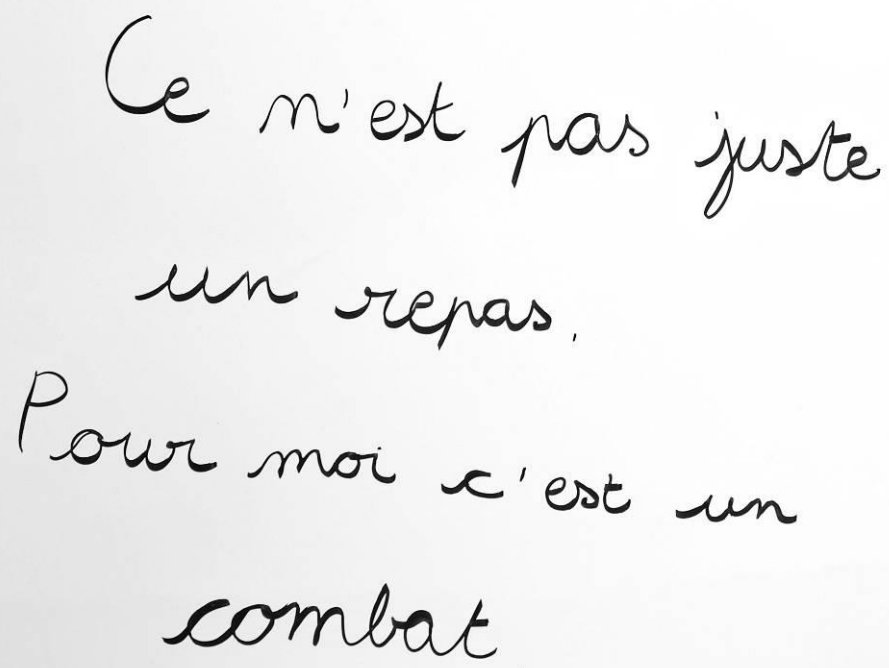 Ce n'est pas juste
un repas.
Pour moi c'est un
combat